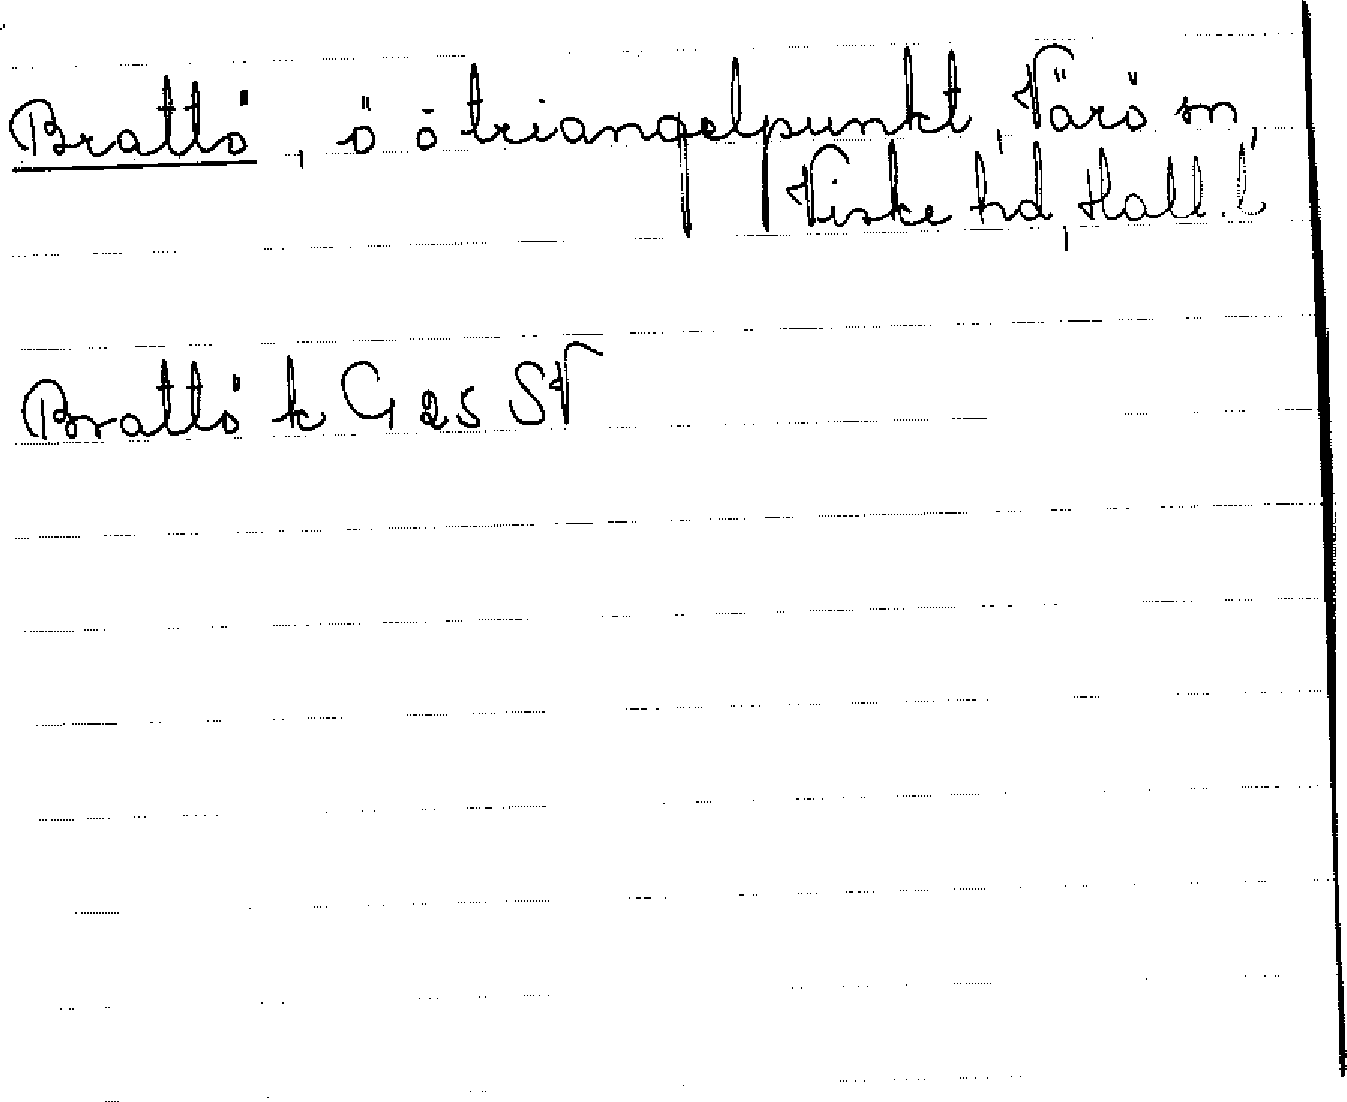 Brattö, ö ö triangelpunkt, Värö sn,
Viske hd, Hall. l
Brattö k G 25 SV